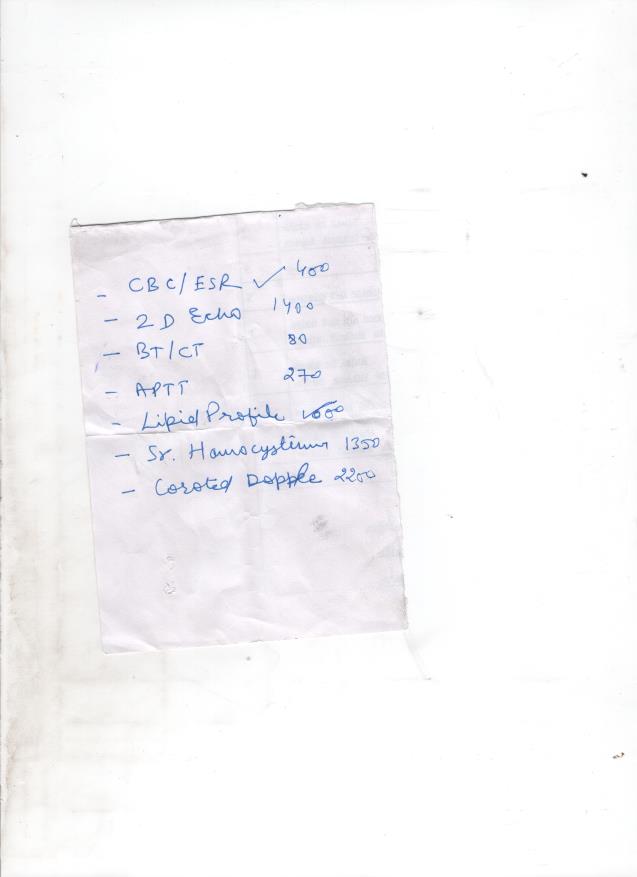 - CBC/ESR ✓ 400
- 2D Echo 1400
- BT/CT 80
- APTT 270
- Lipid Profile
- Sr. Homocystiene 1350
- Coroted Dopple 2200